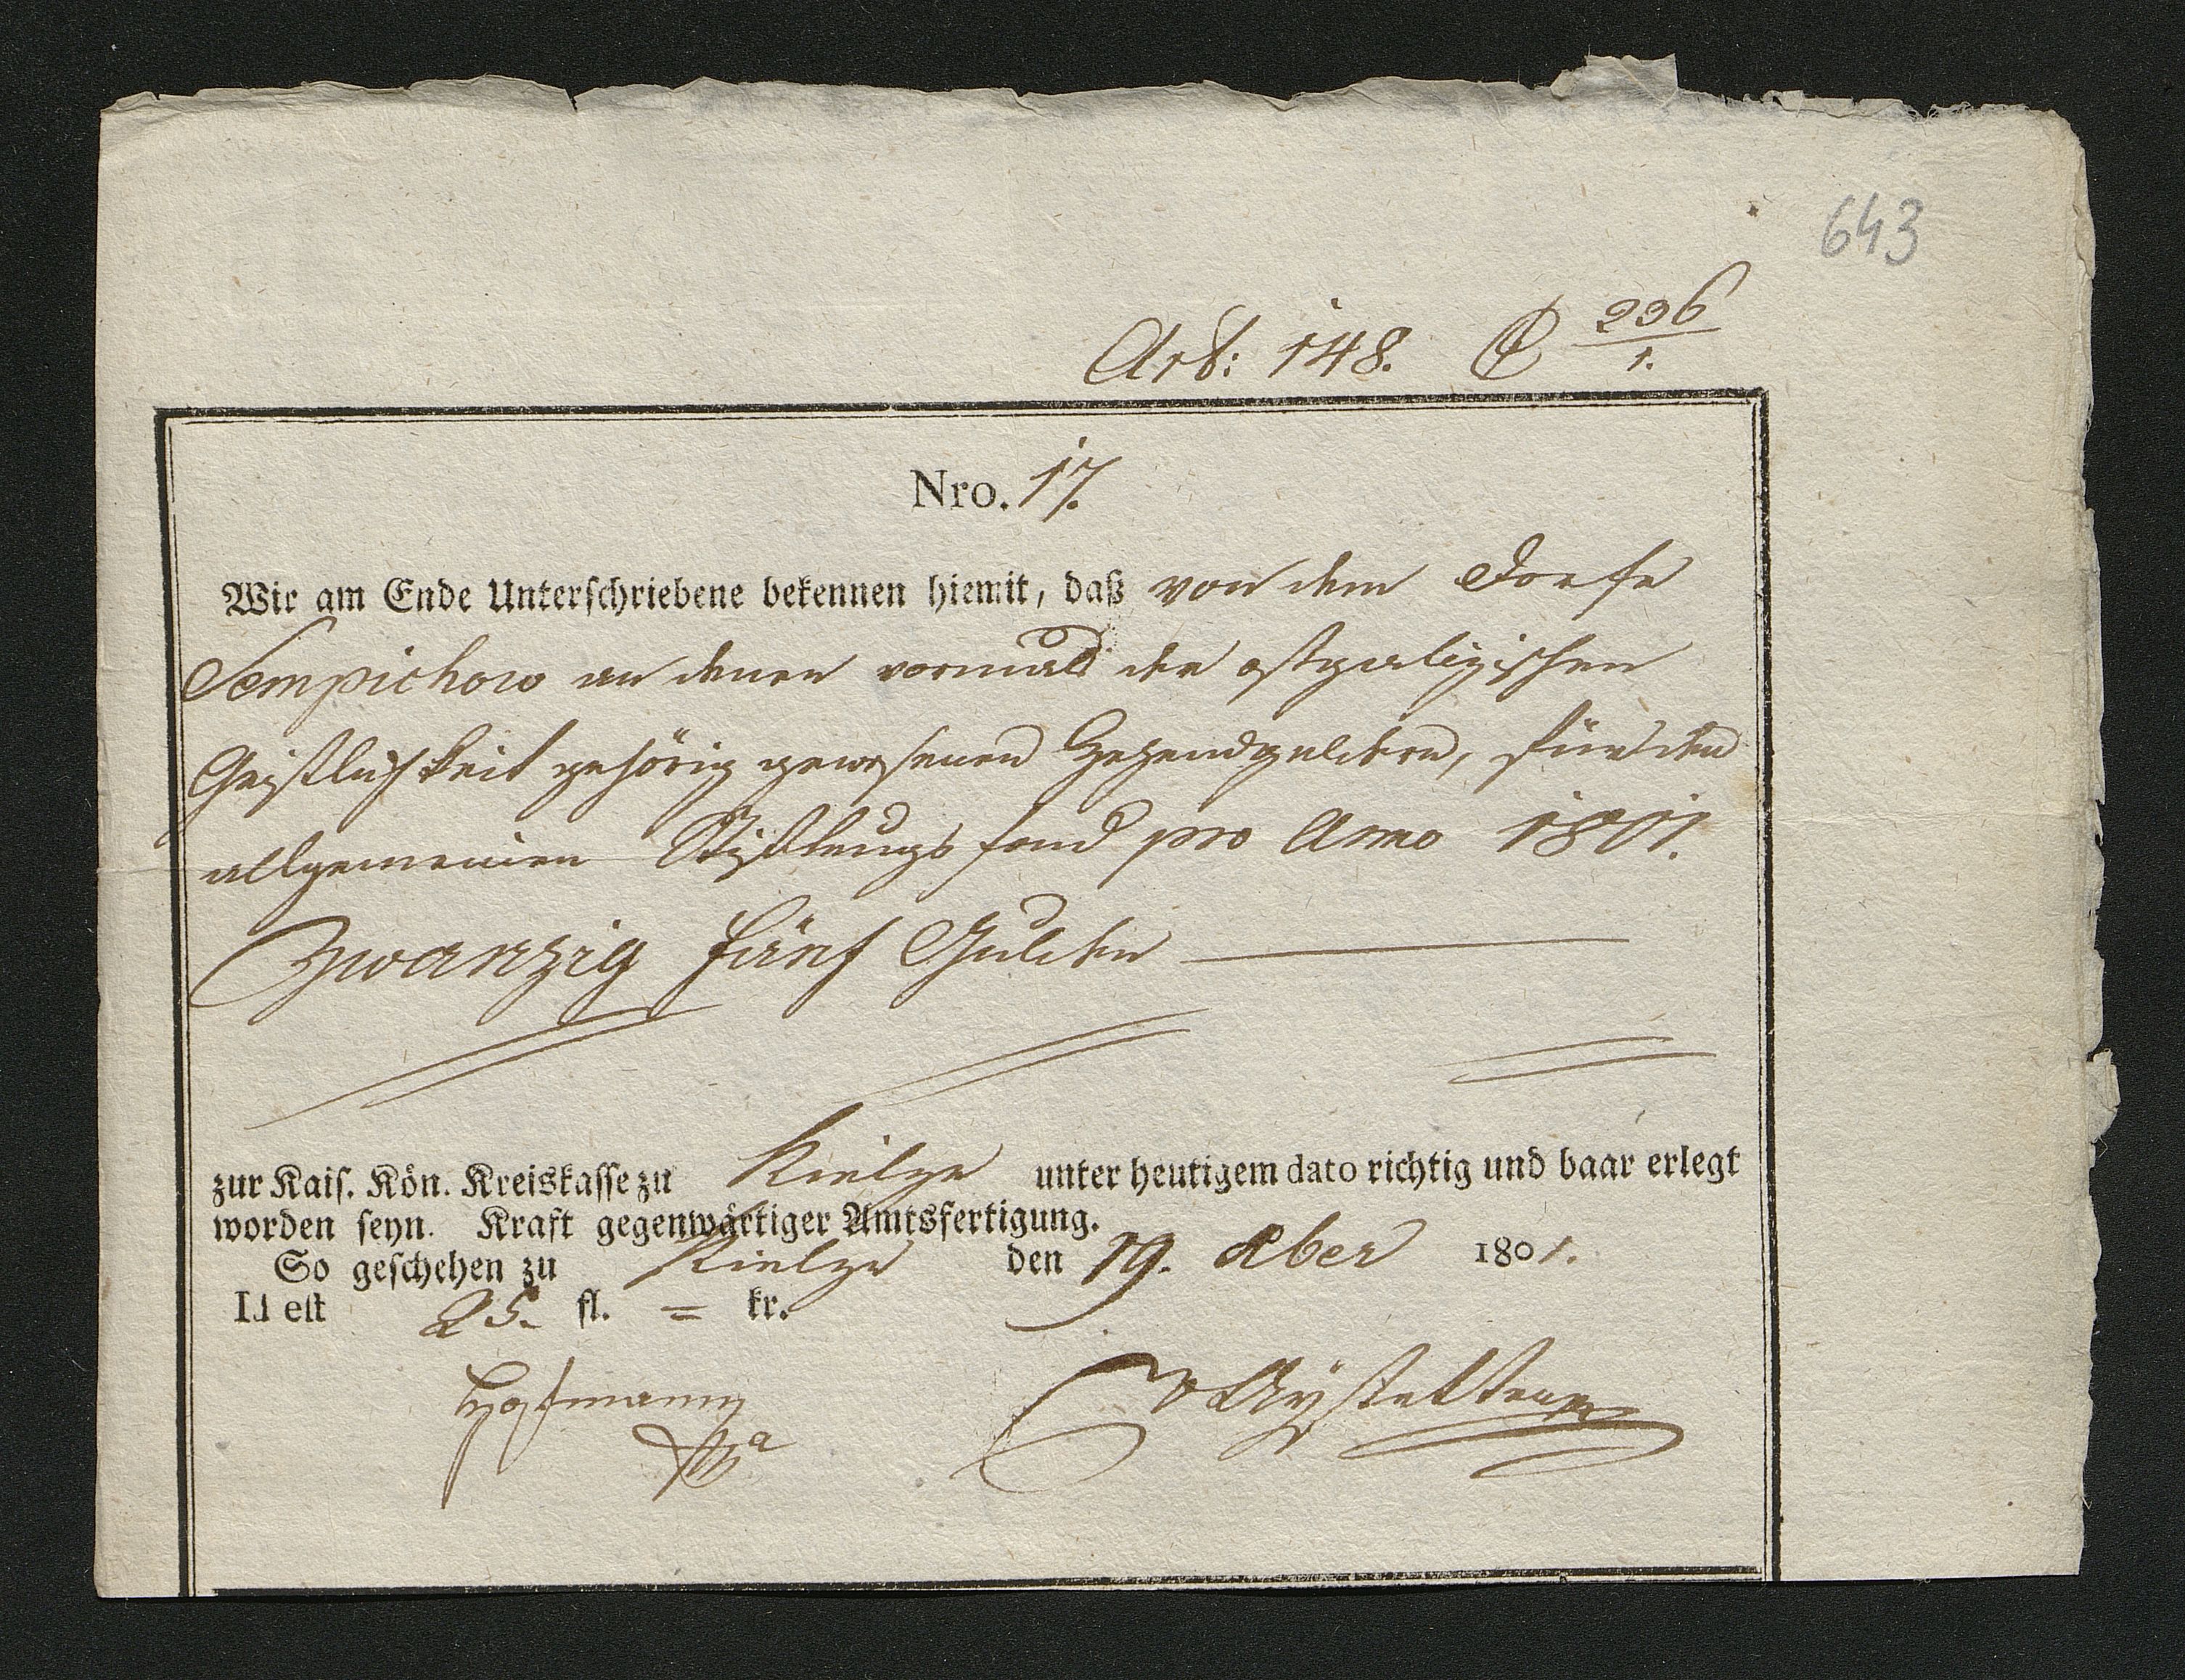 643
Art: 148. 236/1.
Nro. 17.
Wir am Ende Unterschriebene bekennen hiemit, daß von dem Dorfe
Sempichow an denen vormals der ostgalizischen
Geistlichkeit gehörig gewesenen Zehendgeldern, für den
allgemeinen Stiftungsfond pro Anno 1801.
Zwanzig fünf Gulden
zur Kais. Kön. Kreiskasse zu Kielze unter heutigem dato richtig und baar erlegt
worden seyn. Kraft gegenwärtiger Amtsfertigung.
So geschehen zu Kielze den 19. Xber 1801.
Id est 25. fl. = kr.
Hofmann